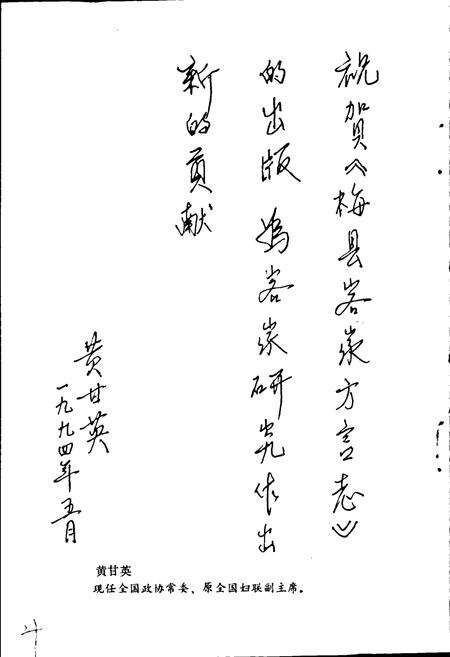 祝贺《梅县客家方言志》
的出版 为客家研究作出
新的贡献
黄甘英
一九九四年五月
黄甘英
现任全国政协常委、原全国妇联副主席。